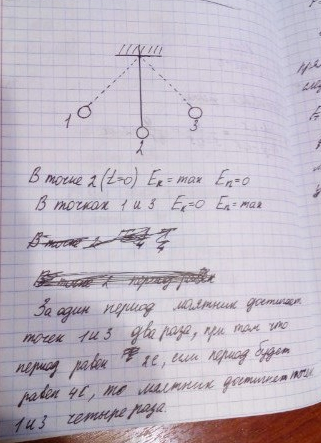 1
2
3
В точке 2 (t=0) Eк = max Eп = 0
В точках 1 и 3 Eк = 0 Eп = max
За один период маятник достигает
точек 1 и 3 два раза, при том что
период равен 2с, если период будет
равен 4с, то маятник достигнет точек
1 и 3 четыре раза.